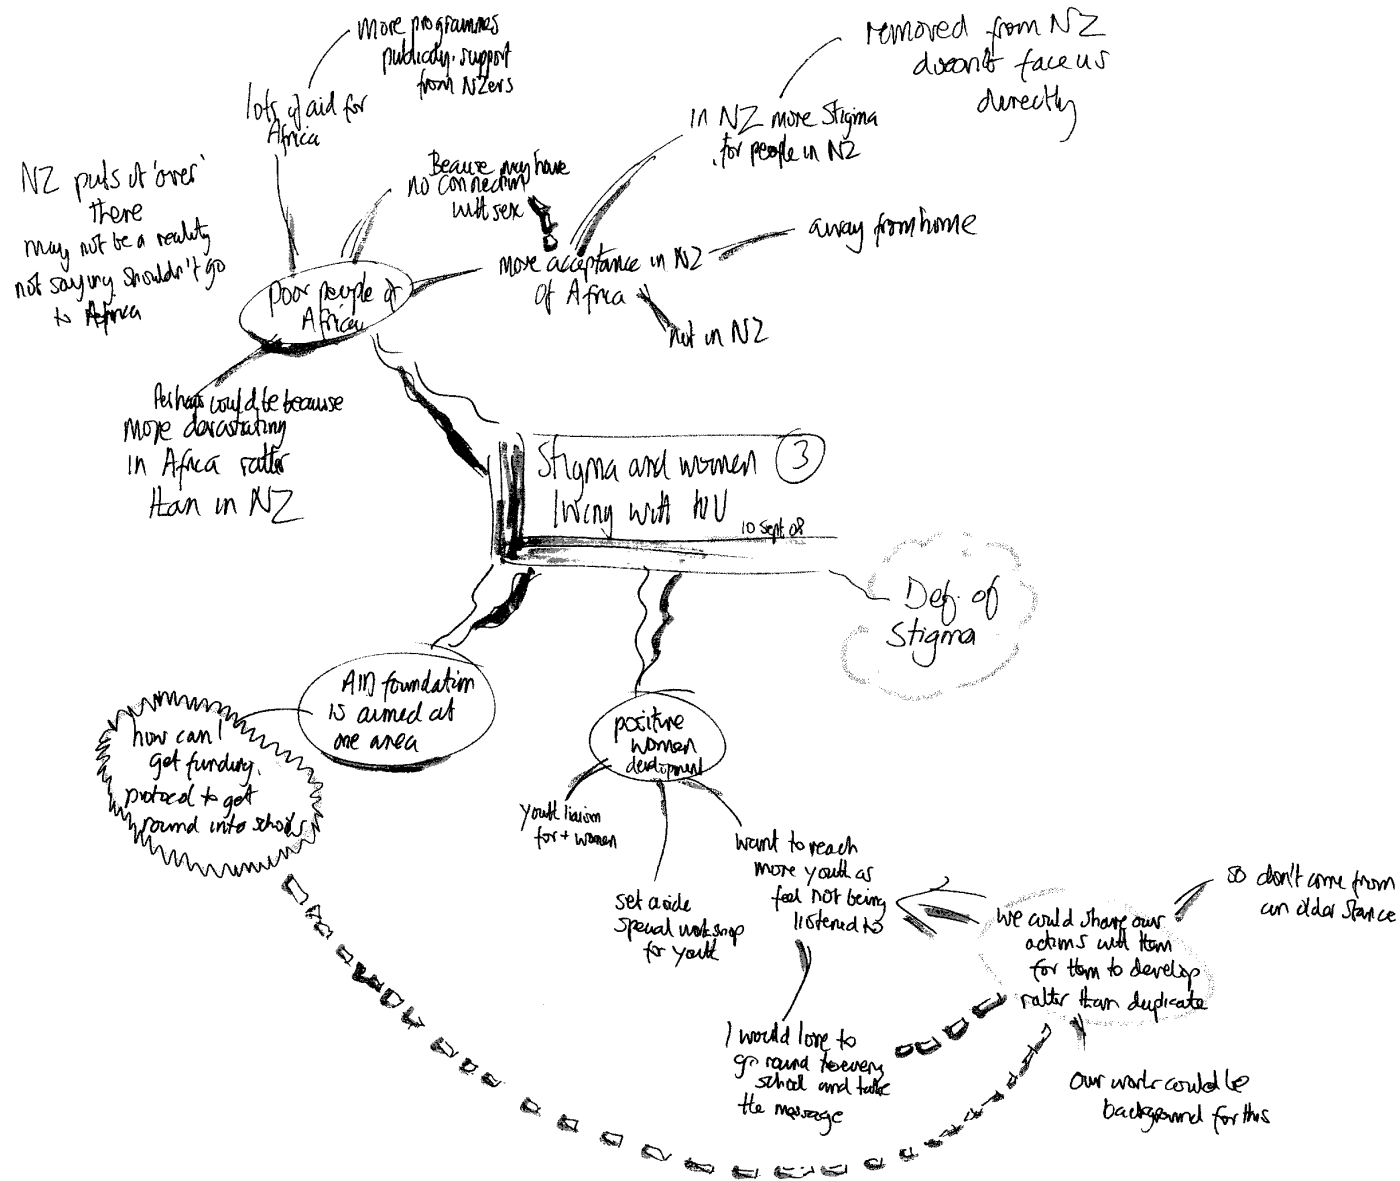 More programmes
publicity. support
from NZers
lots of aid for
Africa
NZ puts it 'over'
there
may not be a reality
not saying shouldn't go
to Africa
Because may have
no connection
with sex
in NZ more stigma
for people in NZ
removed from NZ
doesn't face us
directly
more acceptance in NZ
of Africa
away from home
not in NZ
poor people of
Africa
Perhaps could be because
more devastating
in Africa rather
than in NZ
Stigma and women
living with HIV
3
10 Sept 08
Def. of
Stigma
AID foundation
is aimed at
one area
how can I
get funding.
protocol to get
round into schools
positive
women
development
youth liaison
for + women
set aside
special workshop
for youth
want to reach
more youth as
feel not being
listened to
I would love to
go round to every
school and take
the message
we could share our
actions with them
for them to develop
rather than duplicate
so don't come from
an older stance
our work could be
background for this